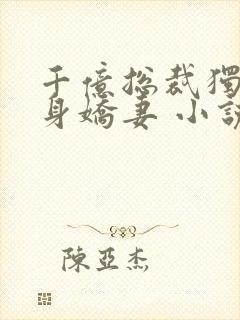 千億总裁獨
身嬌妻 小說
陳亞杰